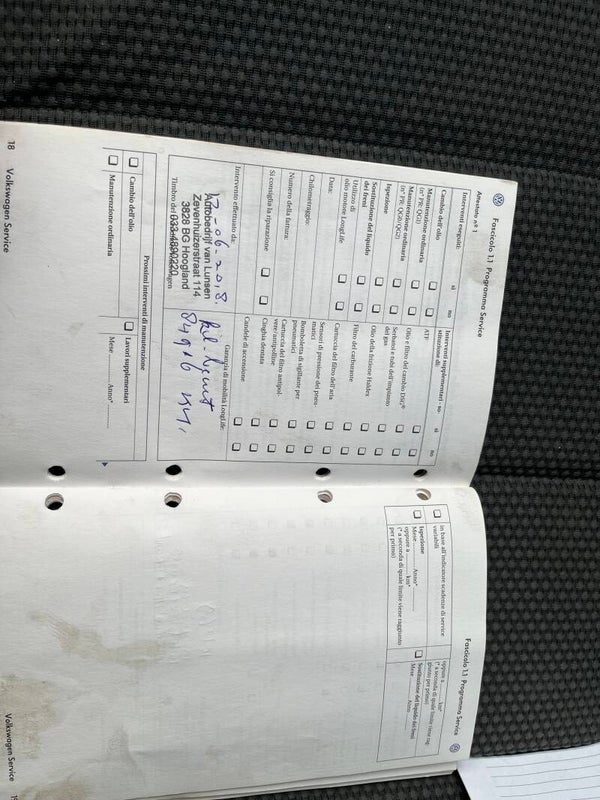 Fascicolo 1.1 Programma Service
Attestato n° 1
Interventi eseguiti:
sì no
Cambio dell'olio
Manutenzione ordinaria
(n° PR: QG1)
Manutenzione ordinaria
(n° PR: QG0/QG2)
Ispezione
Sostituzione del liquido
dei freni
Utilizzo di
olio motore LongLife
Data:
Chilometraggio:
Numero della fattura:
Si consiglia la riparazione
Intervento effettuato da:
Interventi supplementari - so-
stituzione di:
sì no
ATF
Olio e filtro del cambio DSG®
Serbatoio e tubi dell'impianto
del gas
Olio della frizione Haldex
Filtro del carburante
Cartuccia del filtro dell'aria
Sensori di pressione dei pneu-
matici
Bomboletta di sigillante per
pneumatici
Cartuccia del filtro antipol-
vere/antipolline
Cinghia dentata
Candele di accensione
Garanzia di mobilità LongLife:
-06-2018
849 km,
Autobedrijf van Lunsen
Zevenhuizerstraat 114
3828 BG Hoogland
033-4800220
Timbro del
Prossimi interventi di manutenzione
Cambio dell'olio
Manutenzione ordinaria
Lavori supplementari
Mese Anno*
18 Volkswagen Service
Fascicolo 1.1 Programma Service
in base all'indicatore scadenze di service
variabili
Ispezione
Mese Anno*
oppure a km*
(* a seconda di quale limite viene raggiunto
per primo)
oppure a km*
(* a seconda di quale limite viene rag-
giunto per primo)
Sostituzione del liquido dei freni
Mese Anno
Volkswagen Service